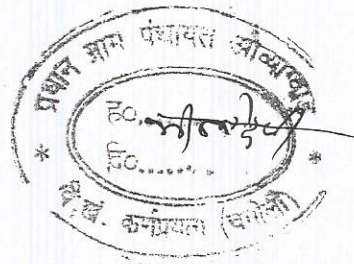 प्रधान ग्राम पंचायत
ह०
दि०........
* वि.ख. कर्णप्रयाग (चमोली) *